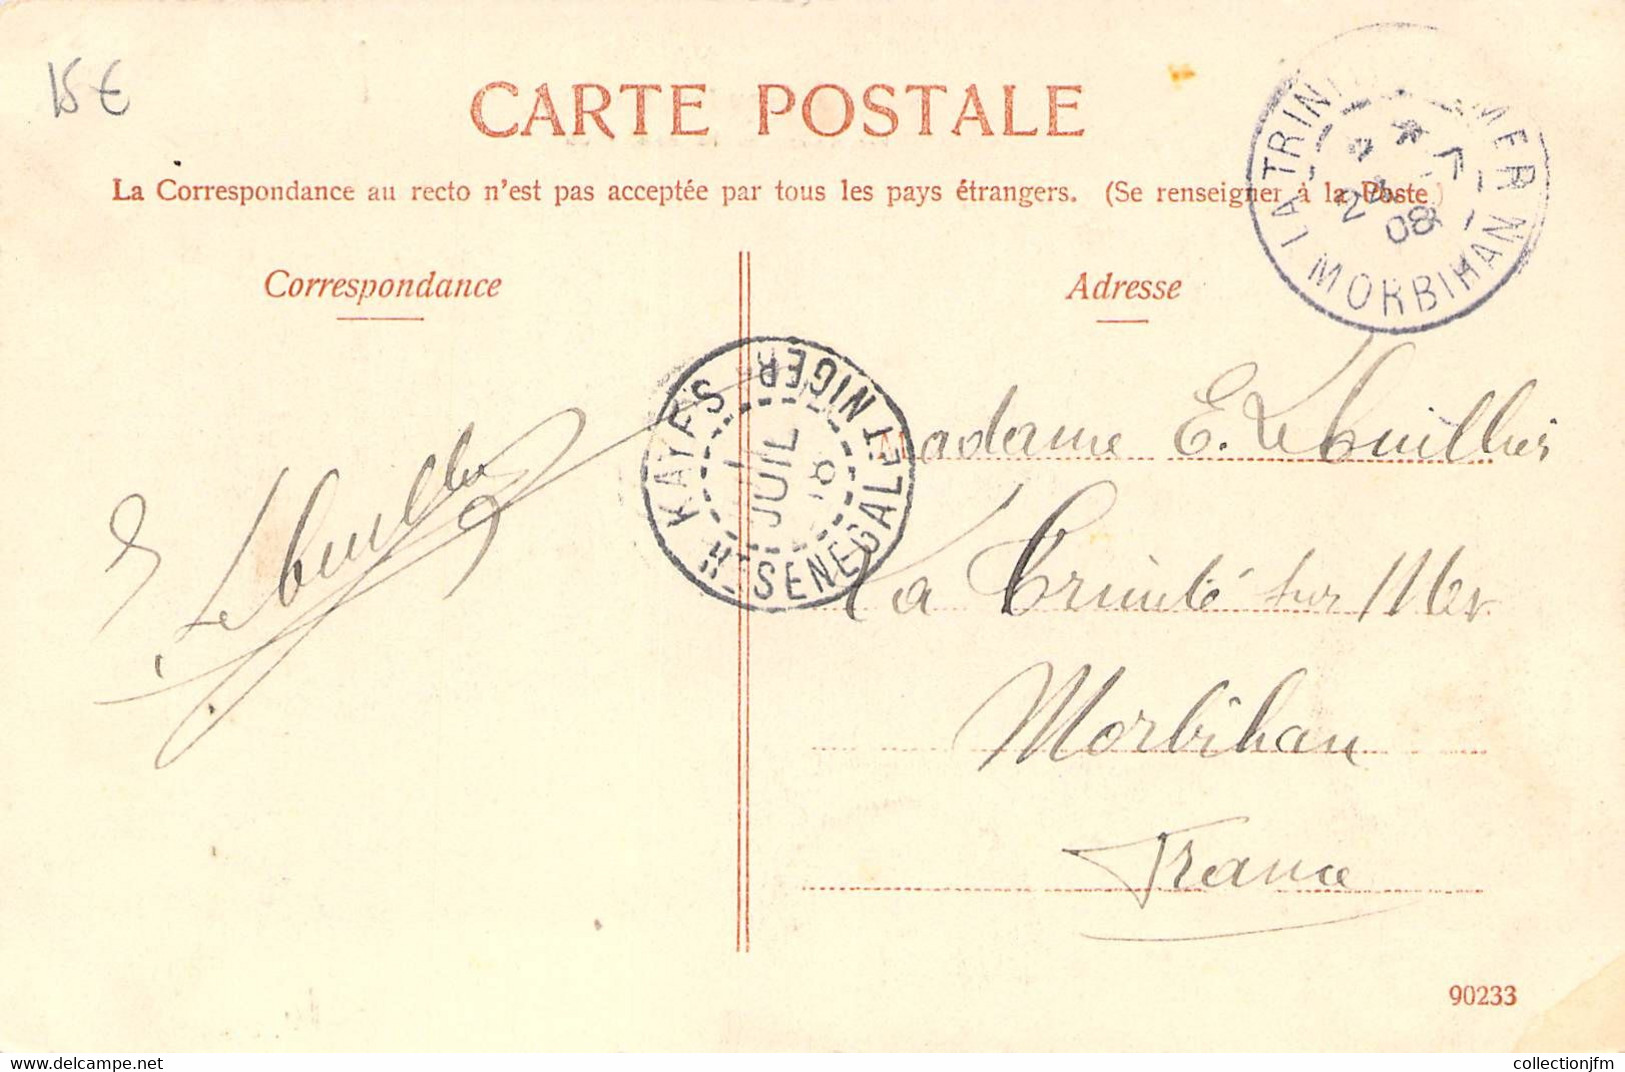 15€
CARTE POSTALE
La Correspondance au recto n'est pas acceptée par tous les pays étrangers. (Se renseigner à la Poste)
LA TRIN MER
24
08
MORBIHAN
Correspondance
Adresse
KAYES
HT-SENEGAL ET NIGER
1
JUIL
08
Madame E. Lebuillier
E. Lebuillier
La Trinité sur Mer
Morbihan
France
90233
collectionjfm